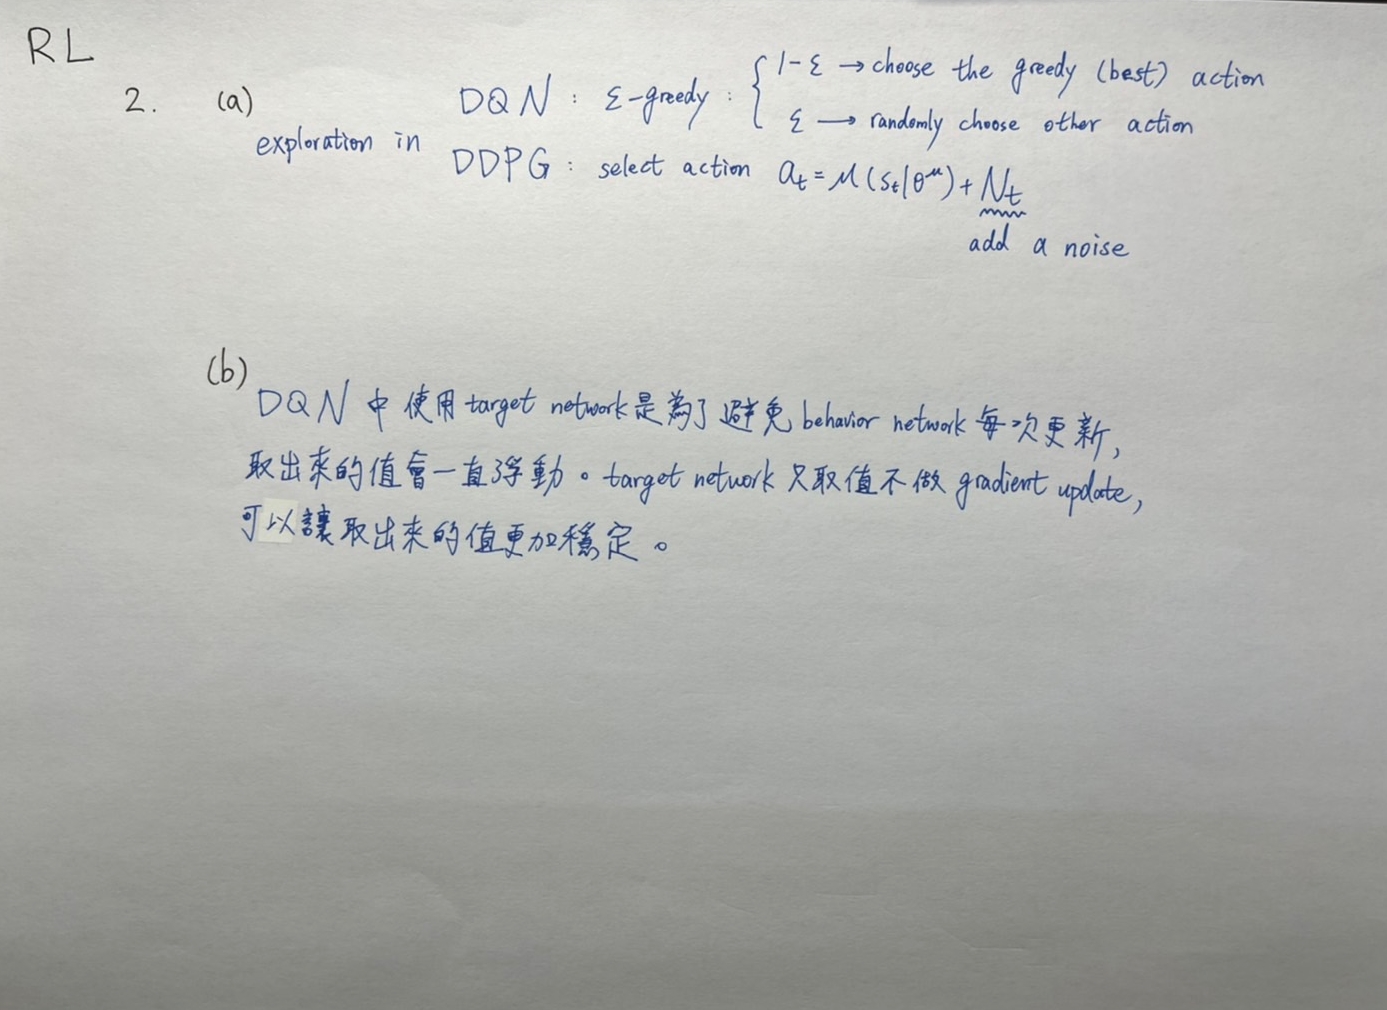 RL
2. (a)
exploration in
DQN : ε-greedy : { 1-ε → choose the greedy (best) action
ε → randomly choose other action
DDPG : select action a_t = μ(s_t|θ^μ) + N_t
add a noise
(b)
DQN 中使用 target network 是為了避免 behavior network 每次更新,
取出來的值會一直浮動。target network 只取值不做 gradient update,
可以讓取出來的值更加穩定。